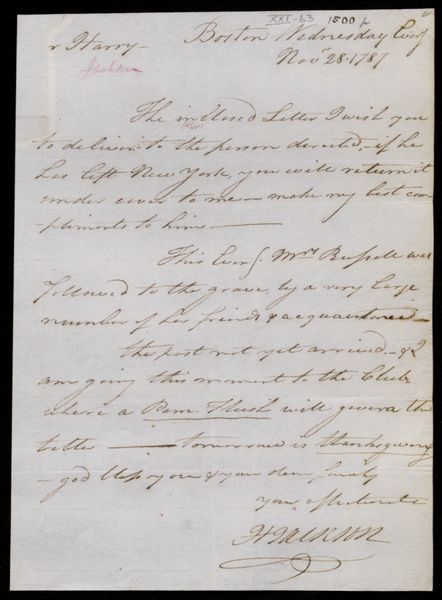 XXI-63 1500
Boston Wednesday Eveg
r Harry— Novr 28. 1787
Jackson
The inclosed Letter I wish you
to deliver to the person directed, if he
has left New York, you will return it
under cover to me — make my best com
pliments to him —
This Eveg. Mrs Russell was
followed to the grave, by a very large
number of her friends & acquaintance
the post not yet arrived — & I
am going this moment to the Club
where a Pam Flush will govern the
better — tomorrow is thanksgiving
— god bless you & your dear family
your affectionate
HJackson